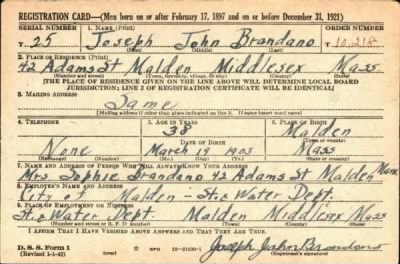 REGISTRATION CARD—(Men born on or after February 17, 1897 and on or before December 31, 1921)
SERIAL NUMBER 1. NAME (Print) ORDER NUMBER
T. 25 Joseph John Brandano T 10,218
(First) (Middle) (Last)
2. PLACE OF RESIDENCE (Print)
42 Adams St Malden Middlesex Mass
(Number and street) (Town, township, village, or city) (County) (State)
[THE PLACE OF RESIDENCE GIVEN ON THE LINE ABOVE WILL DETERMINE LOCAL BOARD
JURISDICTION; LINE 2 OF REGISTRATION CERTIFICATE WILL BE IDENTICAL]
3. MAILING ADDRESS
Same
[Mailing address if other than place indicated on line 2. If same insert word same]
4. TELEPHONE 5. AGE IN YEARS 6. PLACE OF BIRTH
38 Malden
DATE OF BIRTH (Town or county)
None March 19 1903 Mass
(Exchange) (Number) (Mo.) (Day) (Yr.) (State or country)
7. NAME AND ADDRESS OF PERSON WHO WILL ALWAYS KNOW YOUR ADDRESS
Mrs. Sophie Brandano 42 Adams St Malden Mass
8. EMPLOYER'S NAME AND ADDRESS
City Malden - St. & Water Dept.
9. PLACE OF EMPLOYMENT OR BUSINESS
St. & Water Dept. Malden Middlesex Mass
(Number and street or R. F. D. number) (Town) (County) (State)
I AFFIRM THAT I HAVE VERIFIED ABOVE ANSWERS AND THAT THEY ARE TRUE.
D. S. S. Form 1
(Revised 1-1-42) Joseph John Brandano
(Registrant's signature)